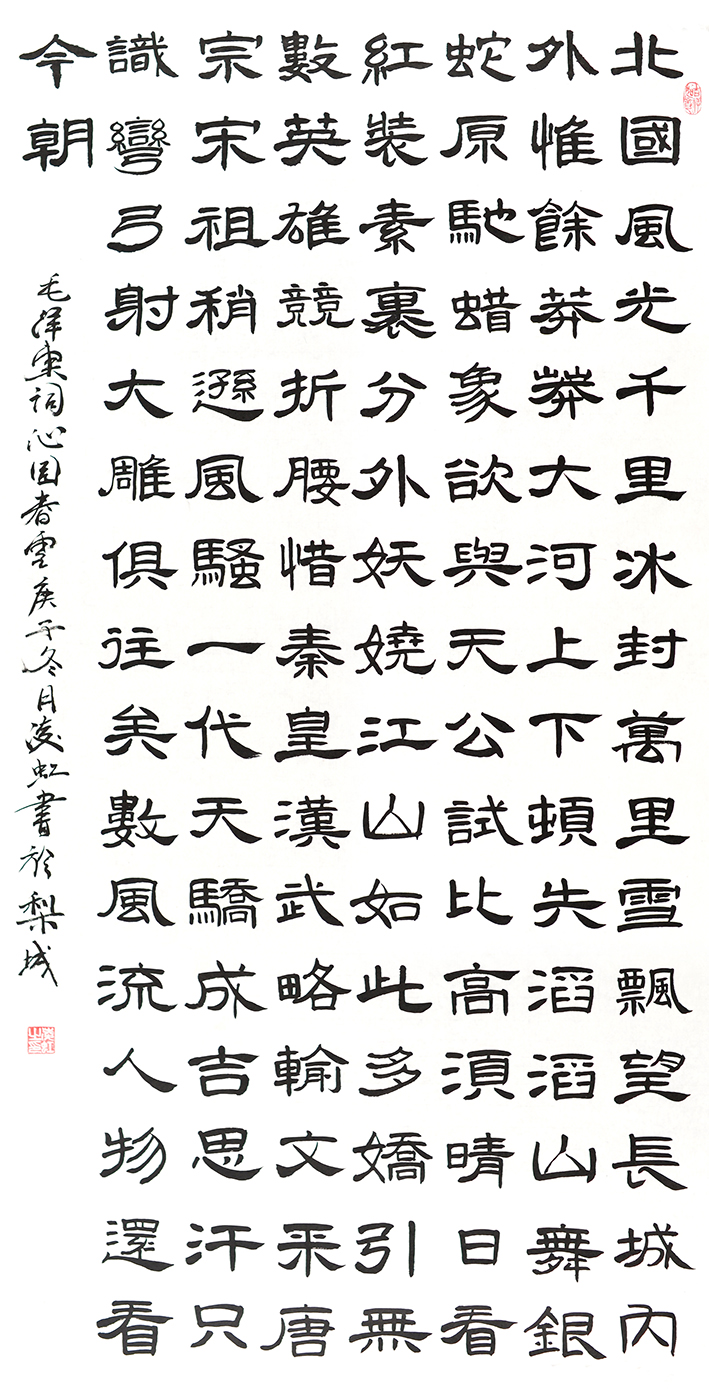 北國風光千里冰封萬里雪飄望長城內
外惟餘莽莽大河上下頓失滔滔山舞銀
蛇原馳蜡象欲與天公試比高須晴日看
紅裝素裹分外妖嬈江山如此多嬌引無
數英雄競折腰惜秦皇漢武略輸文采唐
宗宋祖稍遜風騷一代天驕成吉思汗只
識彎弓射大雕俱往矣數風流人物還看
今朝
毛澤東詞沁园春雪庚子冬月凌虹書於梨城